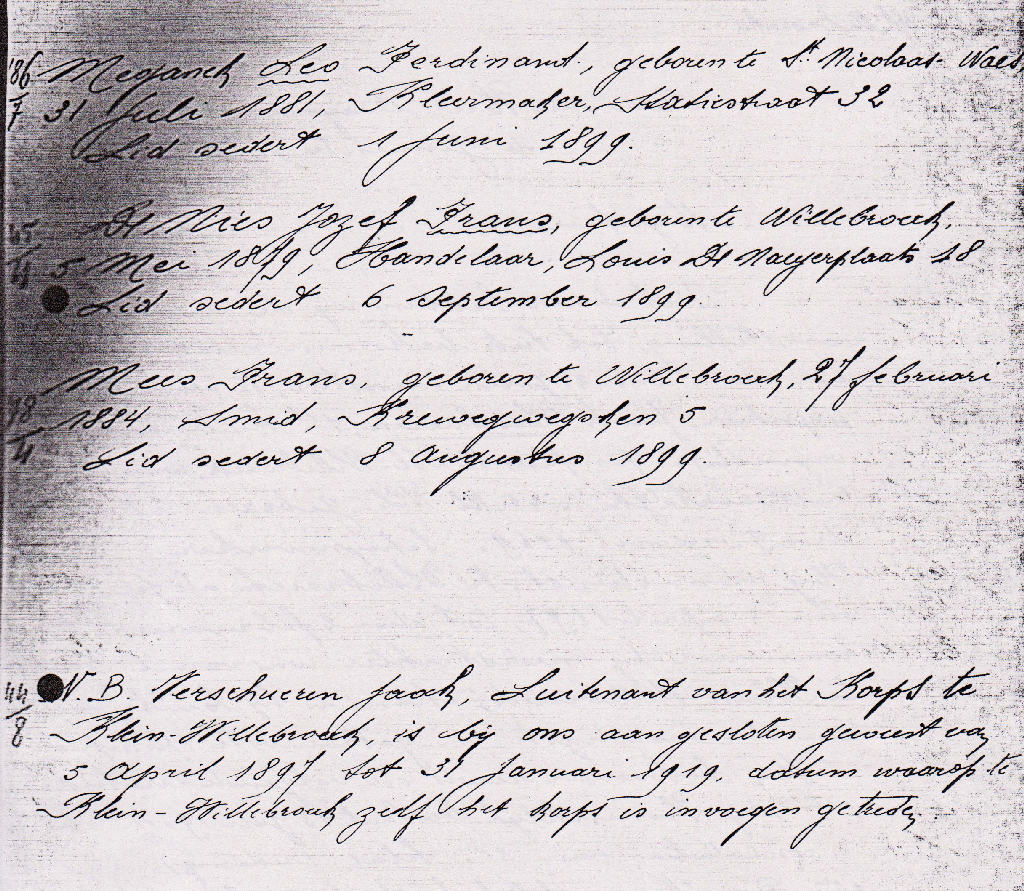 86/7 Meganck Leo Ferdinant, geboren te St. Nicolaas-Waes
31 Juli 1881, Kleermaker, Statiestraat 32
Lid sedert 1 Juni 1899.
De Nies Jozef Frans, geboren te Willebroeck,
5 Mei 1879, Handelaar, Louis De Naeyerplaats 18
Lid sedert 6 September 1899.
Mees Frans, geboren te Willebroeck, 27 februari
1884, Smid,
Lid sedert 8 Augustus 1899.
44/8 N. B. Verschueren Jaak, Luitenant van het Korps te
Klein-Willebroeck, is bij ons aangesloten geweest van
5 April 1897 tot 31 Januari 1919, datum waarop te
Klein-Willebroeck zelf het korps is in voegen getreden.